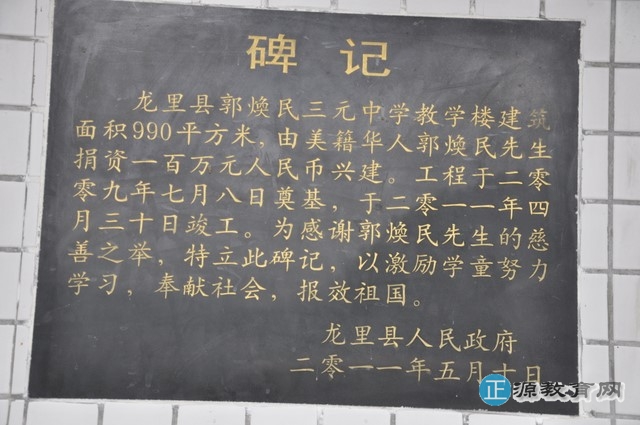 碑记
龙里县郭焕民三元中学教学楼建筑
面积990平方米，由美籍华人郭焕民先生
捐资一百万元人民币兴建。工程于二零
零九年七月八日奠基，于二零一一年四
月三十日竣工。为感谢郭焕民先生的慈
善之举，特立此碑记，以激励学童努力
学习，奉献社会，报效祖国。
龙里县人民政府
二零一一年五月十日
正源教育网